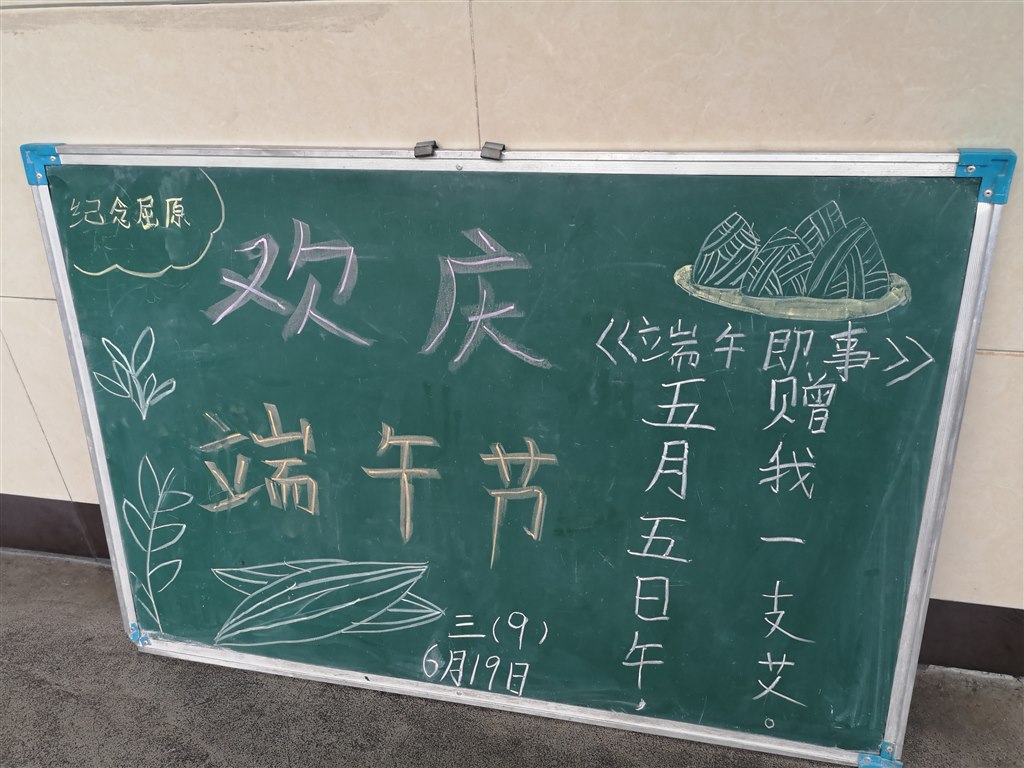 纪念屈原
欢庆
端午节
三(9)
6月19日
《端午即事》
五月五日午，
赠我一支艾。